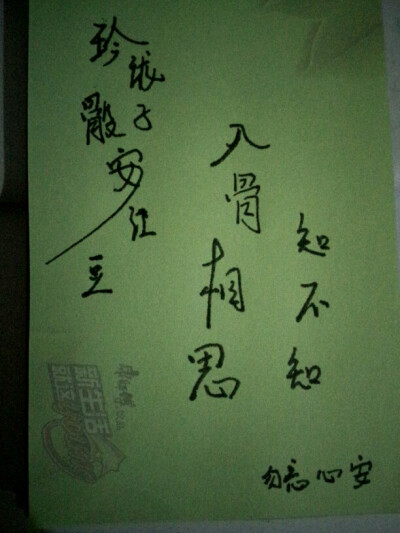 玲珑骰子安红豆
入骨相思
知不知
勿忘心安
新生活